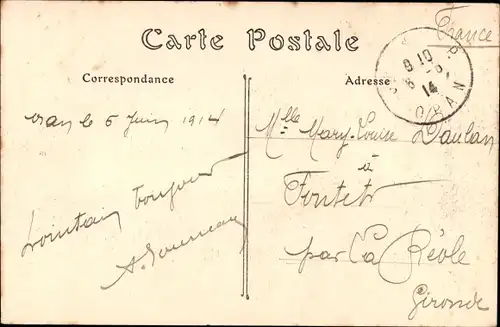 France
Carte Postale
Correspondance
Adresse
9 10
8 - 6
14
ORAN
Oran le 6 Juin 1914
Mlle Mary-Louise
à
lointain toujours
par La Réole
Gironde